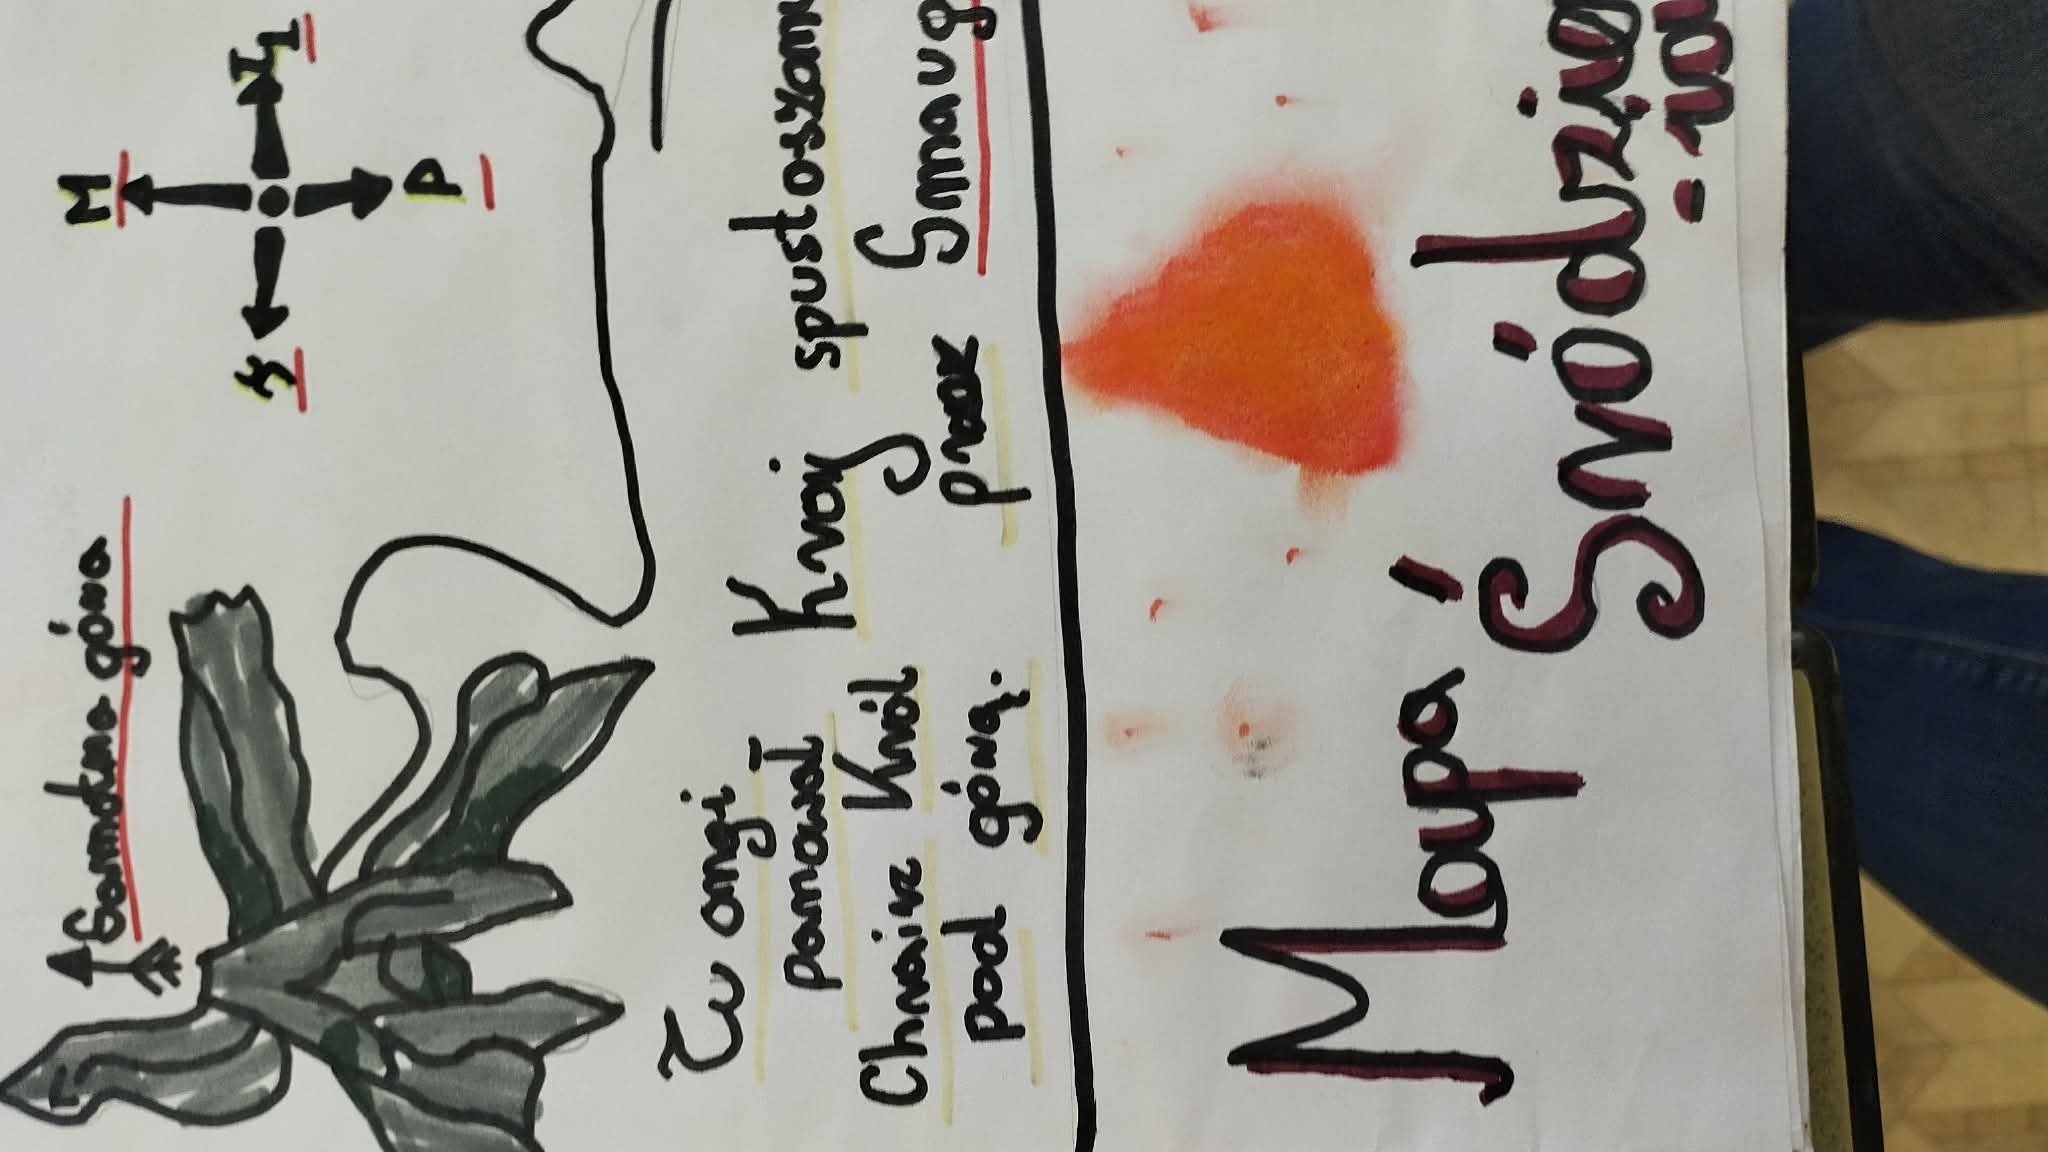 Samotna góra
M
P
Tu ongi
panował
Kraj spustoszan
Król
pod górą.
przez Smaug
Mapa Śródziem